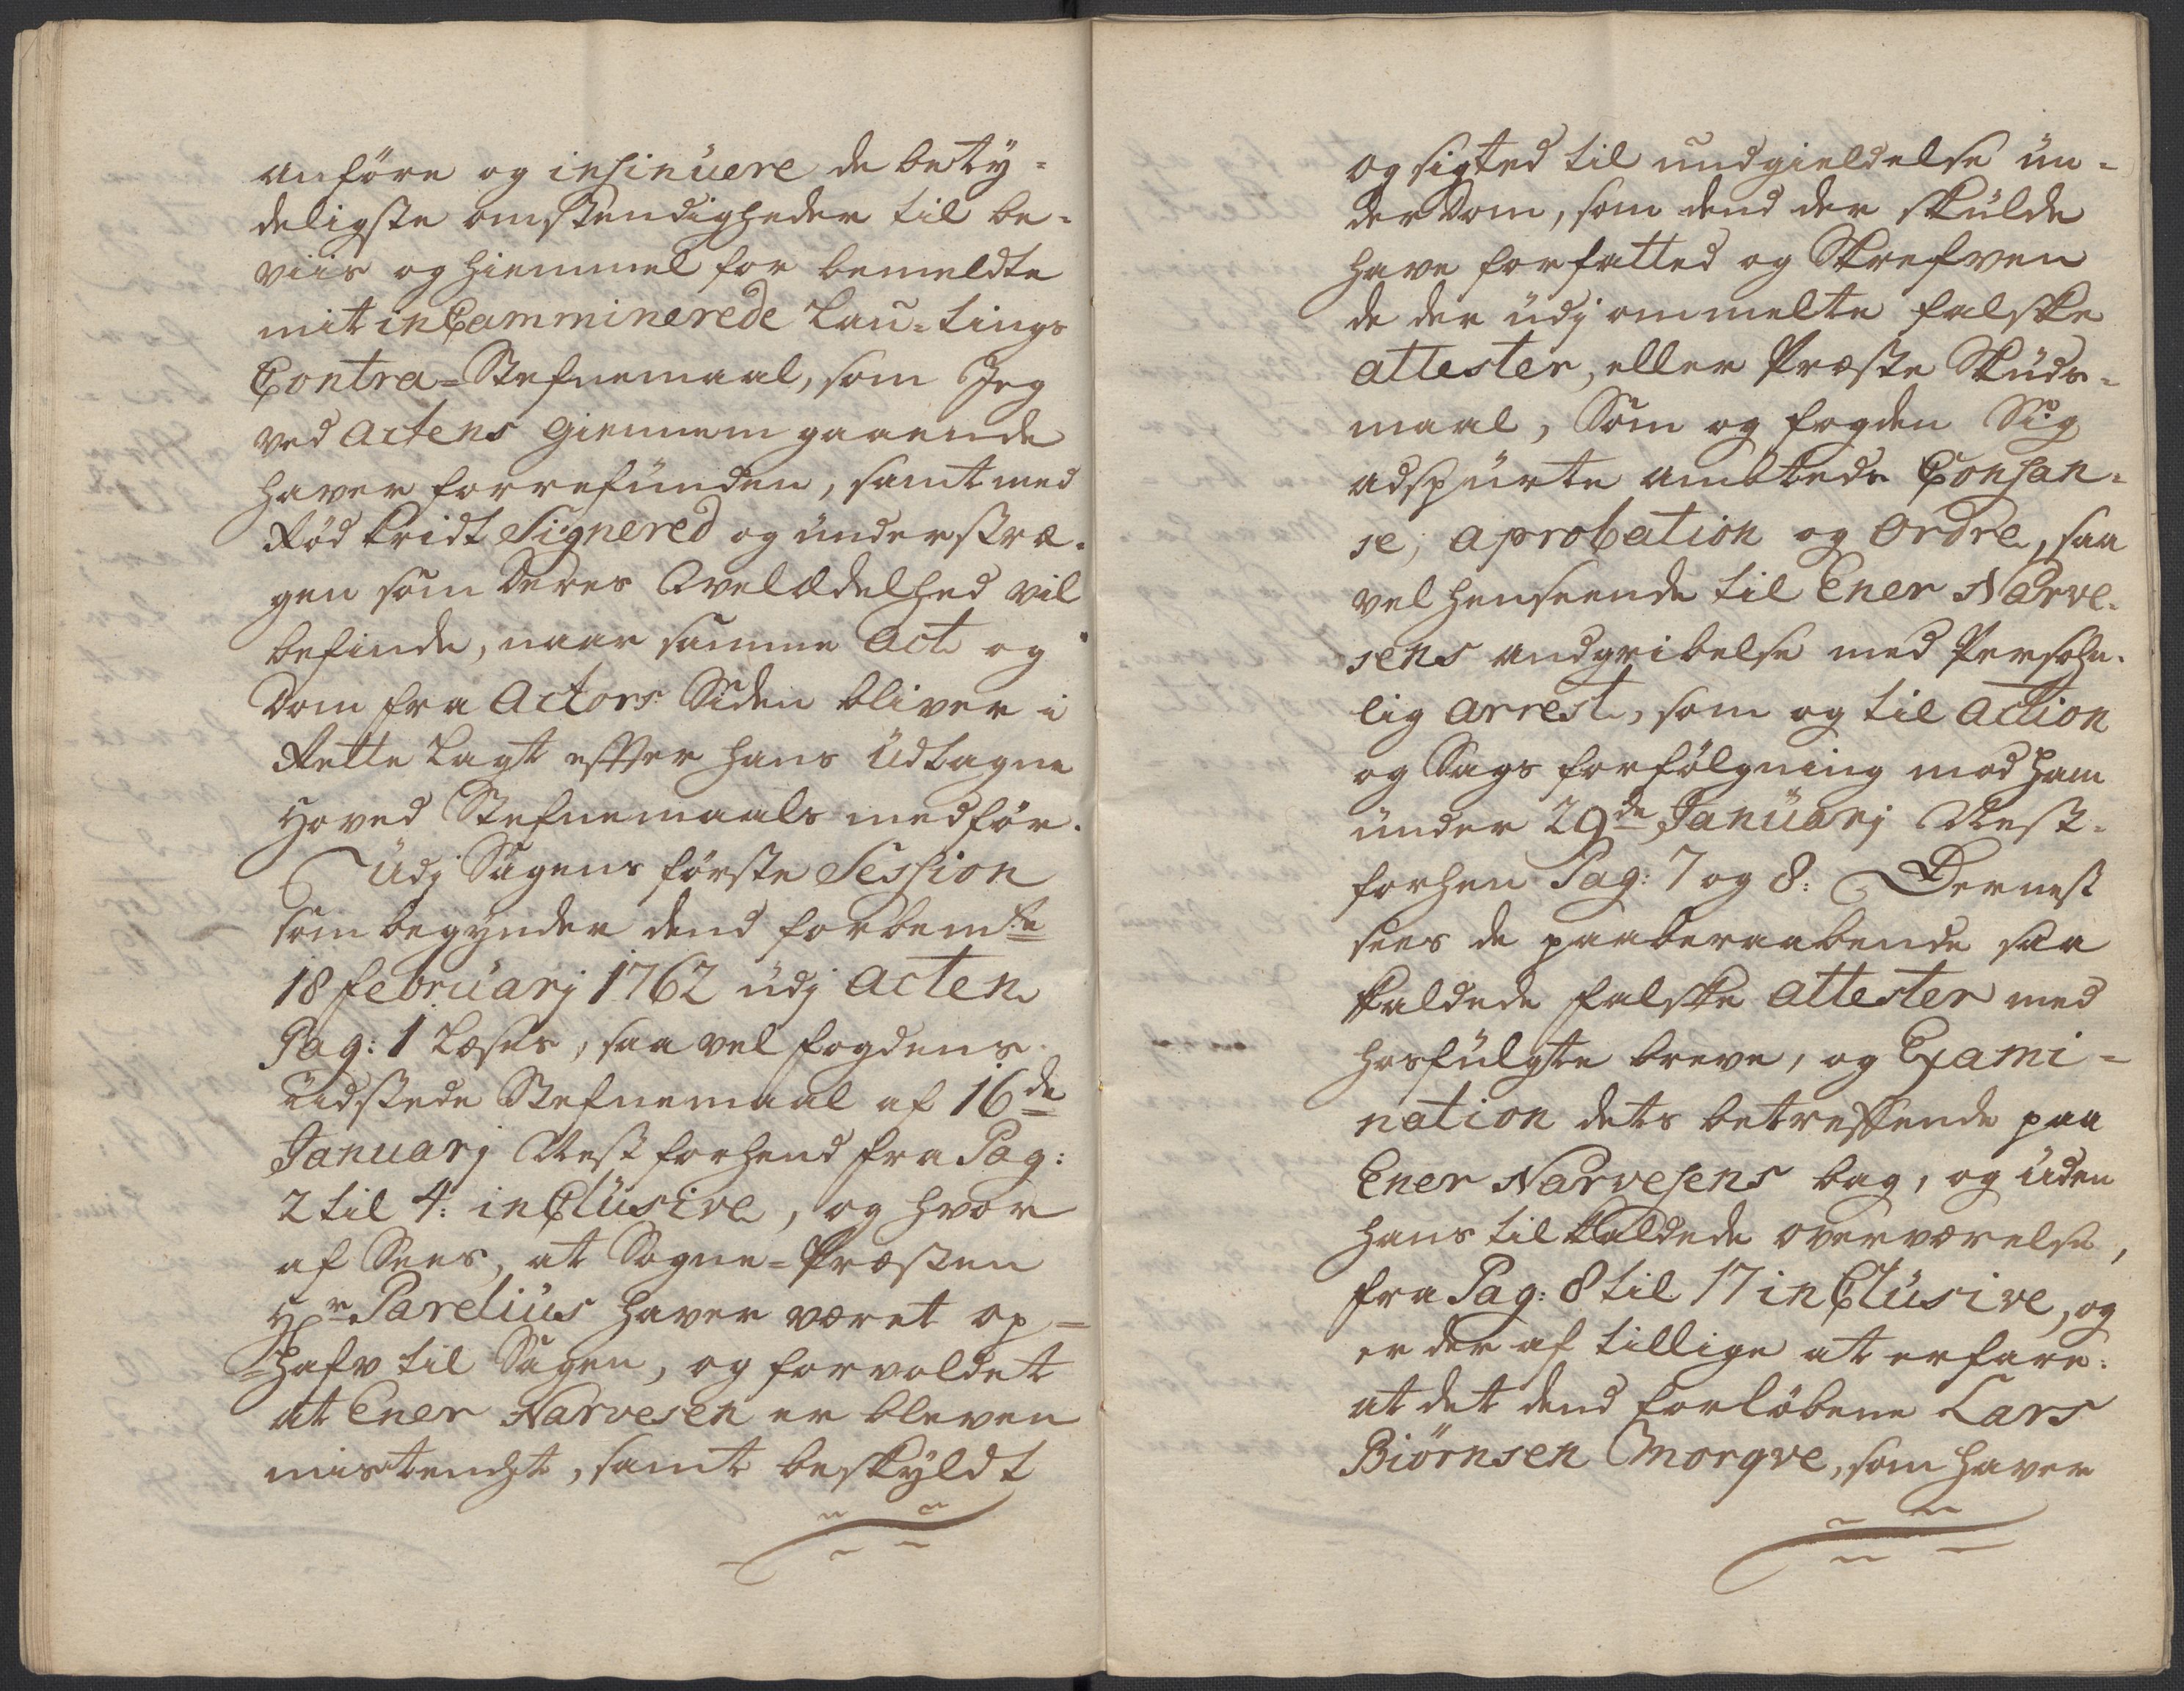 anföre og insinuere de bety-
deligste omstendigheder til be-
viis og hiemmel for bemeldte
mit inCamminerede Lau-tings
Contra-Stefnemaal, som Jeg
ved Actens giennemgaaende
haver forrefunden, samt med
Rød kridt Signered og understræ-
gen som Deres Velædelhed vil
befinde, naar samme Act og
Dom fra Actors Siden bliver i
Rette Lagt effter hans Udtagne
Hoved Stefnemaals medför.
Udj Sagens förste Session
som begynder dend forbem:te
18 februarj 1762 udj Acten
Pag: 1 Læses, saa vel fogdens
Udstede Stefnemaal af 16de
Januarj Nest forhend fra Pag:
2 til 4: inClusive, og hvor
af Sees, at Sogne-Præsten
Hr Parelius haver været op-
=hafv til Sagen, og forvoldet
at Ener Narvesen er bleven
mistenckt, samt beskyldt
og sigted til undgieldelse un-
der Dom, som dend der skulde
have forfatted og Skrefven
de der udj ommelte falske
attester, eller Præste Skuds-
maal, Som og fogden Sig
adspurte Ambteds Consen-
se, aprobation og Ordre, saa
vel henseende til Ener Narve-
sens andgribelse med Persohn-
lig Arrest, som og til Action
og Sags forfölgning mod ham
under 29de Januarj Nest-
forhen Pag: 7 og 8: Dernest
sees de paaberaabende saa
kaldede falske attester med
hosfulgte breve, og Exami-
nation dets betreffende paa
Ener Narvesens bag, og uden
hans til kaldede overværelse,
fra Pag: 8 til 17 inClusive, og
er der af tillige at erfare:
at det dend forlöbene Lars
Biörnsen Morqve, som haver